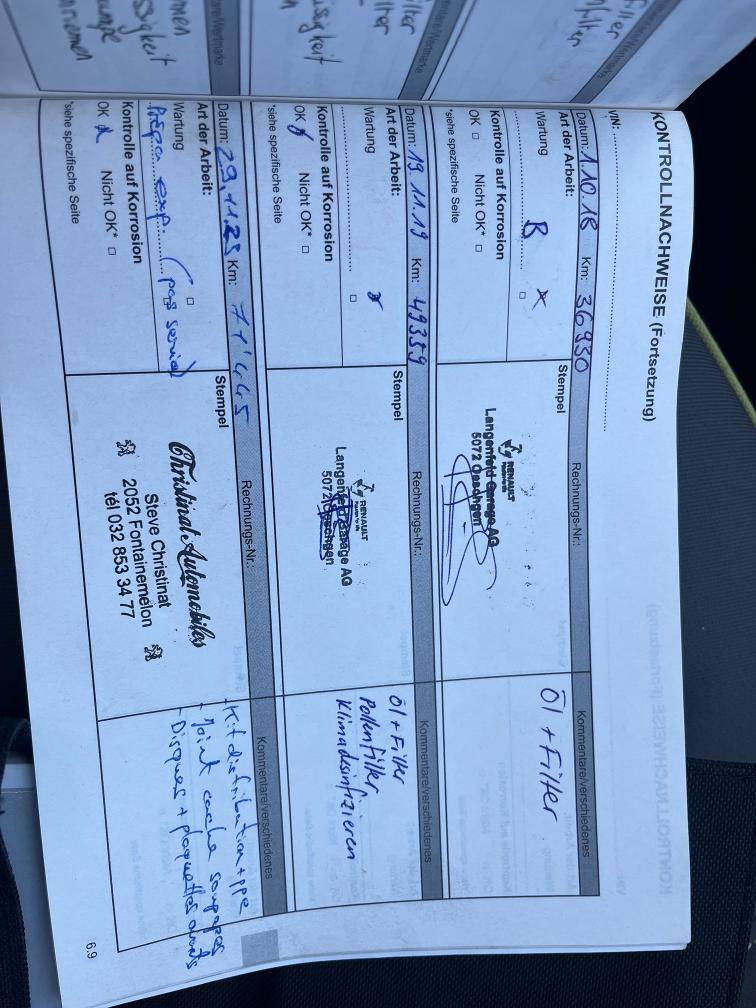 KONTROLLNACHWEISE (Fortsetzung)
VIN:
Datum: 1.10.18 Km: 36930 Rechnungs-Nr.: Kommentare/verschiedenes
Art der Arbeit: Stempel
Wartung B
Kontrolle auf Korrosion
OK Nicht OK*
*siehe spezifische Seite
RENAULT
Langenfeld Garage AG
5072 Oeschgen
Öl + Filter
Datum: 19.11.19 Km: 49359 Rechnungs-Nr.: Kommentare/verschiedenes
Art der Arbeit: Stempel
Wartung
Kontrolle auf Korrosion
OK Nicht OK*
*siehe spezifische Seite
RENAULT
Langenfeld Garage AG
5072 Oeschgen
Öl + Filter
Pollenfilter
Klimadesinfizieren
Datum: 29.11.23 Km: 71'445 Rechnungs-Nr.: Kommentare/verschiedenes
Art der Arbeit: Stempel
Wartung
Prépa exp. (pas service)
Kontrolle auf Korrosion
OK Nicht OK*
*siehe spezifische Seite
Christinat Automobiles
Steve Christinat
2052 Fontainemelon
tél 032 853 34 77
- Kit distribution + ppe
- Joint cache soupapes
- Disques + plaquettes avants
6.9